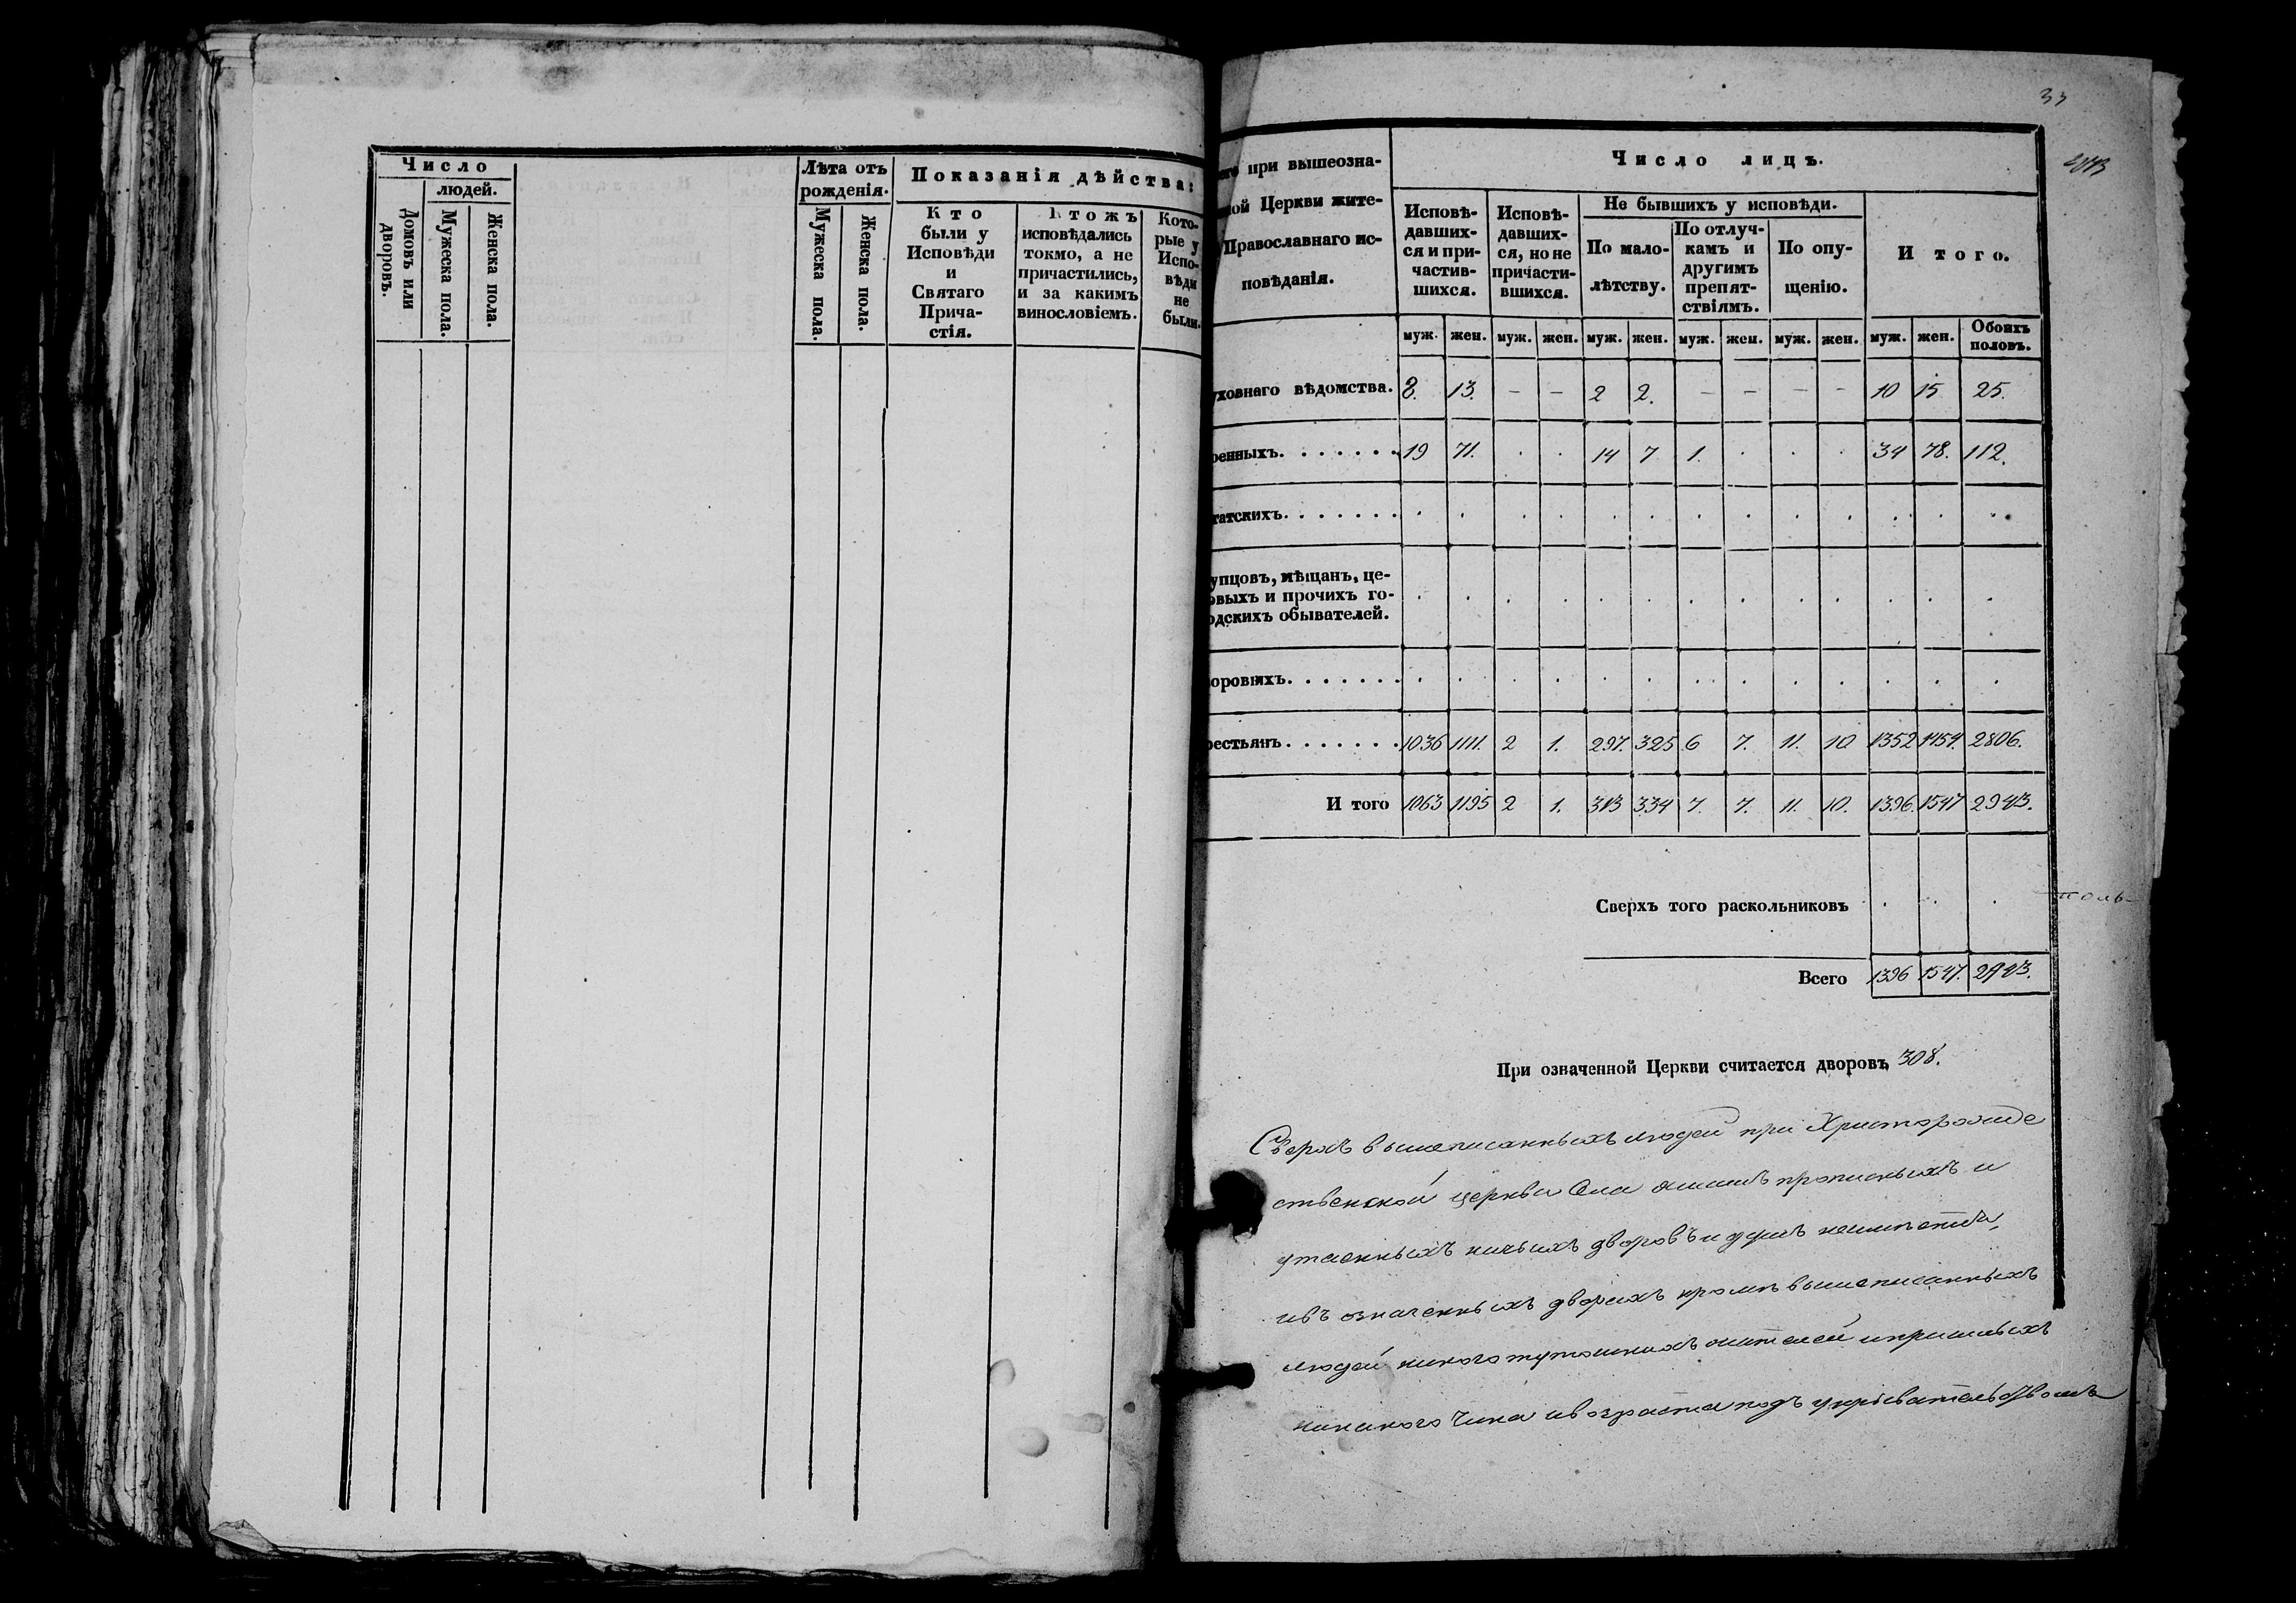 Число
людей.
Домовъ или дворовъ.
Мужеска пола.
Женска пола.
Лѣта отъ
рожденія.
Мужеска пола.
Женска пола.
Показанія дѣйства:
Кто
были у
Исповѣди
и
Святаго
Прича-
стія.
Ктожъ
исповѣдались
токмо, а не
причастились,
и за какимъ
винословіемъ.
Кото-
рые у
Испо-
вѣди
не
были.
33
при вышеозна-
ной Церкви жите-
Православнаго ис-
повѣданія.
Число лицъ.
Исповѣ-
давших-
ся и при-
частив-
шихся.
Исповѣ-
давших-
ся, но не
причасти-
вшихся.
Не бывшихъ у исповѣди.
По мало-
лѣтству.
По отлуч-
камъ и
другимъ
препят-
ствіямъ.
По опу-
щенію.
Итого.
муж. жен. муж. жен. муж. жен. муж. жен. муж. жен. муж. жен. Обоихъ половъ.
уховнаго вѣдомства. 8. 13. — — 2 2. — — — — 10 15 25.
оенныхъ. . . . . . . 19 71. . . 14 7 1. . . . 34 78. 112.
татскихъ. . . . . . . . . . . . . . . . . . . .
упцовъ, мѣщанъ, це-
овыхъ и прочихъ го-
одскихъ обывателей. . . . . . . . . . . . . .
оровыхъ. . . . . . . . . . . . . . . . . . . .
рестьянъ. . . . . . . 1036 1111. 2 1. 297. 325 6 7. 11. 10 1352 1454. 2806.
И того 1063 1195 2 1. 313 334 7. 7. 11. 10. 1396. 1547 2943.
Сверхъ того раскольниковъ . . .
толь-
Всего 1396 1547. 2943.
При означенной Церкви считается дворовъ 308.
Сверхъ вышеписанныхъ людей при Христорожде
ственской церкви прописныхъ и
утаенныхъ ничьихъ дворовъ и душъ
ивъ означенныхъ дворахъ кромѣ вышеписанныхъ
людей никого тутошнихъ жителей и пришлыхъ
никакого чина и возраста подъ укрывательствомъ